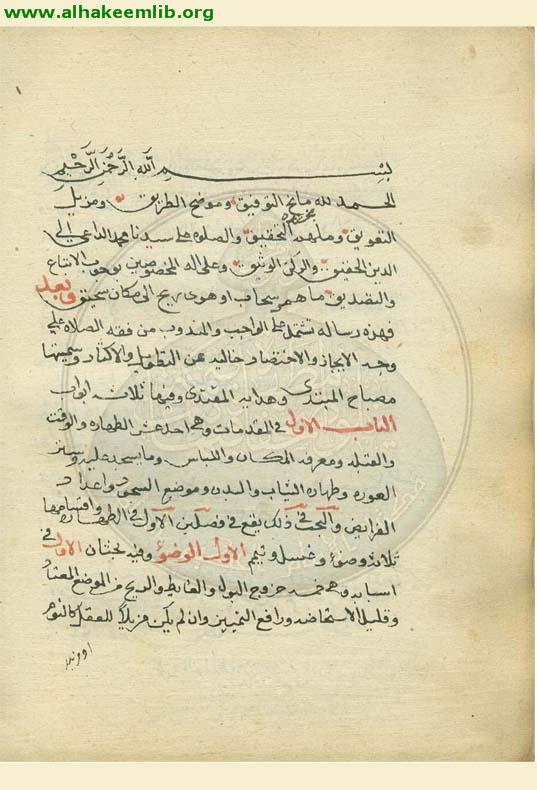 www.alhakeemlib.org
بسم الله الرحمن الرحيم
الحمد لله مانح التوفيق وموضح الطريق ومزيل
التعويق وملهم التحقيق والصلوه على سيدنا محمد الداعي الى
الدين الحقيق والركن الوثيق وعلى اله المخصوصين بوجوب الاتباع
والتصديق ما همر سحاب او هوى ريح الى مكان سحيق وبعد
فهذه رساله تشتمل على الواجب والمندوب من فقه الصلاه على
وجه الايجاز والاختصار خاليه عن التطويل والاكثار وسميتها
مصباح المبتدى وهدايه المقتدى وفيها ثلاثه ابواب
الباب الاول في المقدمات وهي احد عشر الطهاره والوقت
والقبله ومعرفه المكان واللباس وما يسجد عليه وستر
العوره وطهاره الثياب والبدن وموضع السجود واعداد
الفرايض والبحث في ذلك يقع في فصلين الاول في الطهاره واقسامها
ثلاثه وضوء وغسل وتيمم الاول الوضوء وفيه بحثان الاول في
اسبابه وهي خمسه خروج البول والغايط والريح من الموضع المعتاد
وقليل الاستحاضه ورافع التمييز وان لم يكن مزيلا للعقل كالنوم